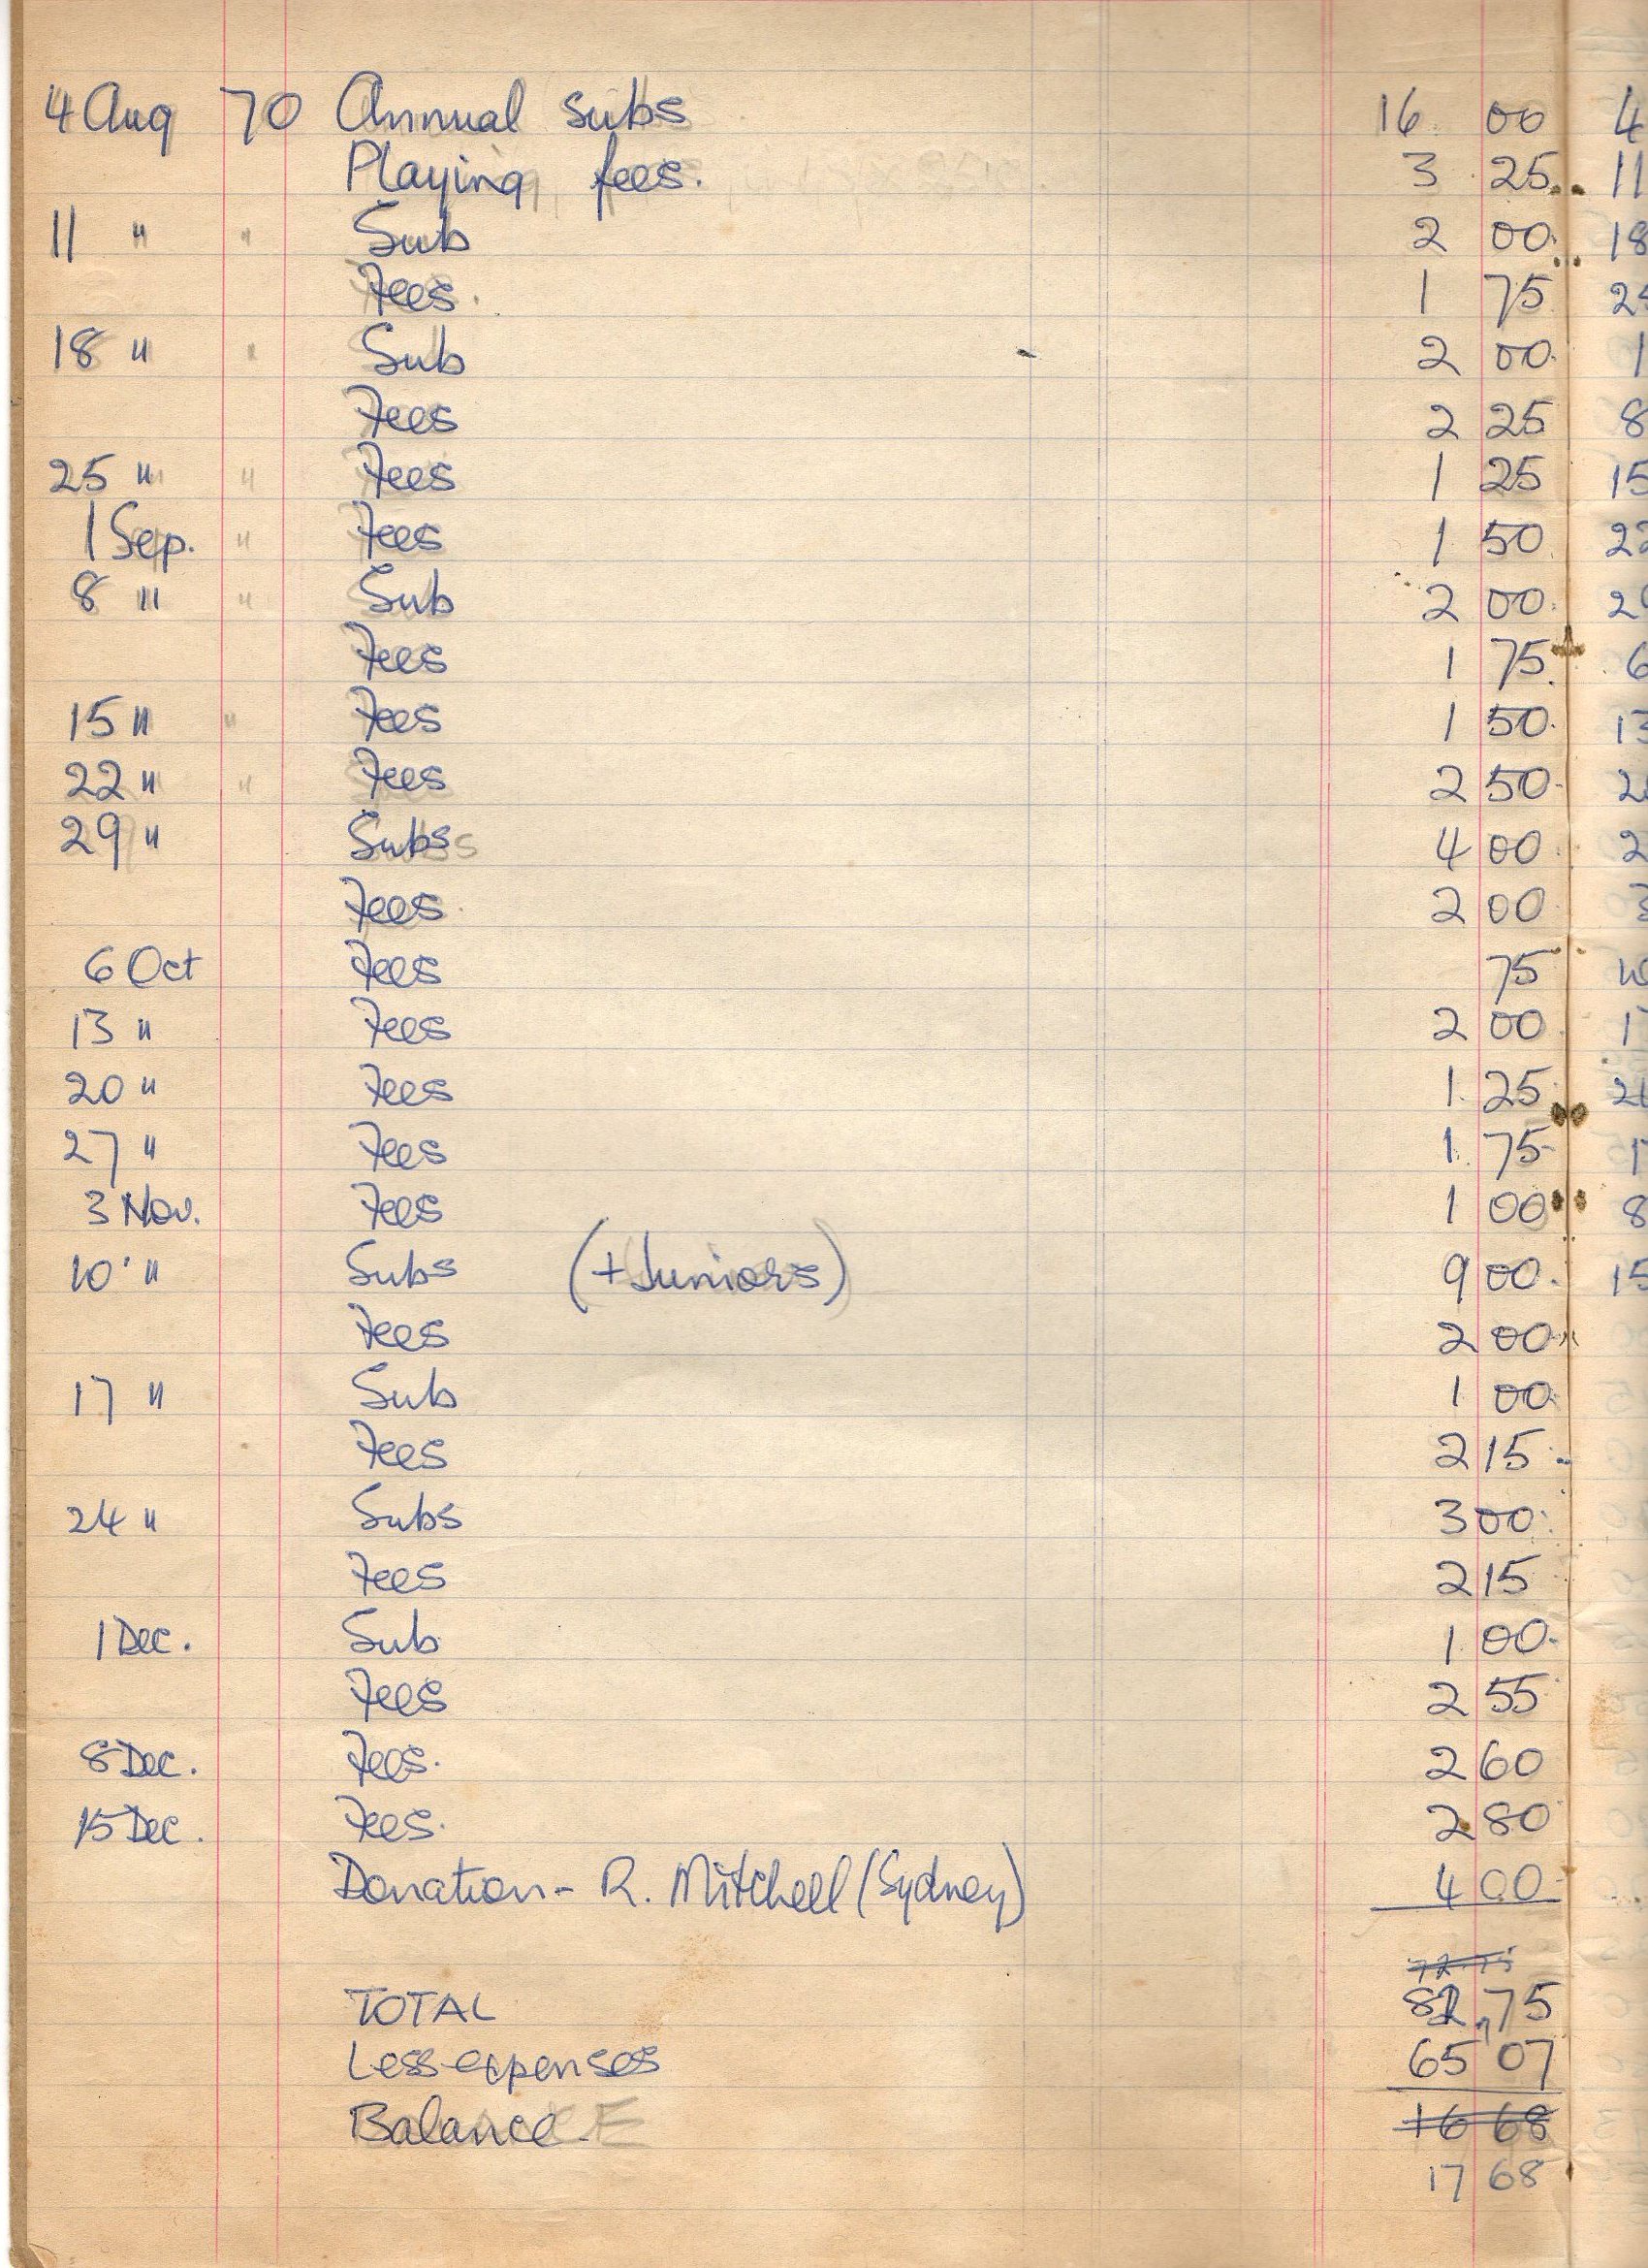 4 Aug 70 Annual subs 16 00 4
Playing fees. 3 25 11
11 " " Sub 2 00 18
Fees. 1 75
18 " " Sub 2 00 1
Fees 2 25 8
25 " " Fees 1 25 15
1 Sep. " Fees 1 50
8 " " Sub 2 00
Fees 1 75 6
15 " " Fees 1 50 13
22 " " Fees 2 50
29 " Subs 4 00
Fees. 2 00
6 Oct Fees 75
13 " Fees 2 00
20 " Fees 1 25
27 " Fees 1 75
3 Nov. Fees 1 00 8
10 " Subs (+Juniors) 9 00 15
Fees 2 00
17 " Sub 1 00
Fees 2 15
24 " Subs 3 00
Fees 2 15
1 Dec. Sub 1 00
Fees 2 55
8 Dec. Fees. 2 60
15 Dec. Fees. 2 80
Donation - R. Mitchell (Sydney) 4 00
72 75
TOTAL 82,75
Less expenses 65 07
Balance. 16 68
17 68